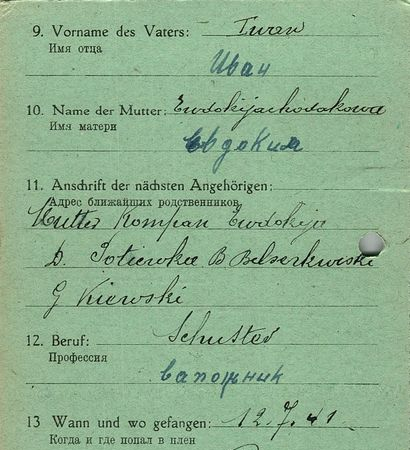 9. Vorname des Vaters: Iwen
Имя отца
Иван
10. Name der Mutter: Ewdokija Chodakowa
Имя матери
Евдокия
11. Anschrift der nächsten Angehörigen:
Адрес ближайших родственников
Mutter Kompan Ewdokija
D. Sotiewka B Belserkwiski
G Kiewski
12. Beruf: Schuster
Профессия
сапожник
13 Wann und wo gefangen: 12.7.41
Когда и где попал в плен